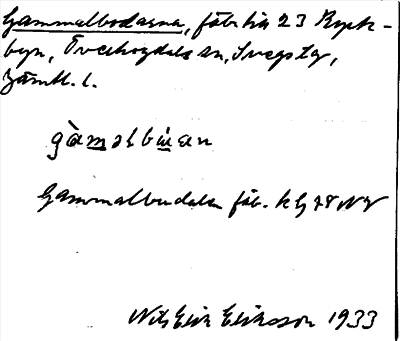 Gammalbodarna, fäb. till 23 Ryck-
byn, Överhogdals sn, Svegs tg,
Jämtl. l.
gàmalbúan
Gammalbudalen fäb. k bl 78 NV
Nils Erik Eriksson 1933